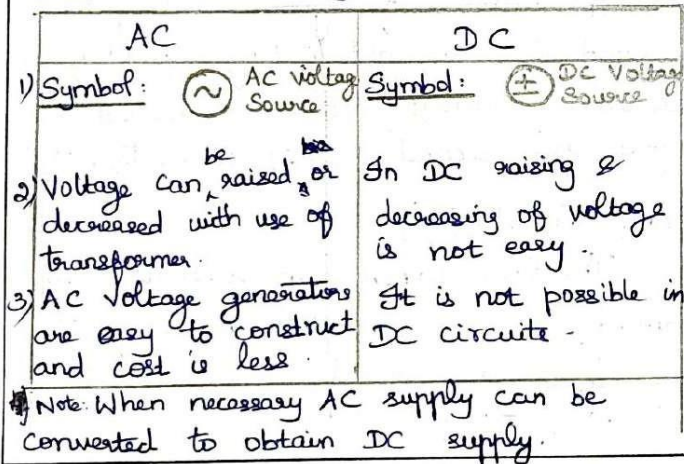 AC
DC
1) Symbol: ~ AC Voltage
Source
Symbol: ± DC Voltage
Source
2) Voltage can be raised or
decreased with use of
transformer.
In DC raising &
decreasing of voltage
is not easy.
3) AC Voltage generations
are easy to construct
and cost is less.
It is not possible in
DC circuits.
Note: When necessary AC supply can be
converted to obtain DC supply.